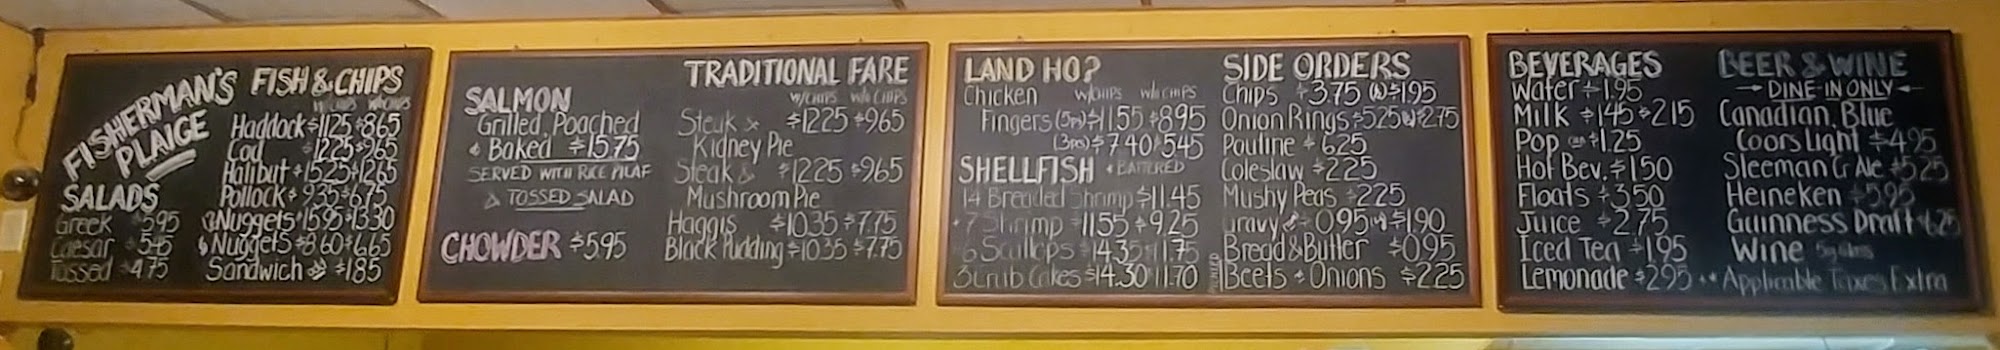 FISHERMAN'S
PLAICE
SALADS
Greek $5.95
Caesar $5.45
Tossed $4.75
FISH & CHIPS
W/CHIPS W/O CHIPS
Haddock $11.25 $8.65
Cod $12.25 $9.65
Halibut $15.25 $12.65
Pollock $9.35 $6.75
Nuggets $15.95 $13.30
Nuggets $8.60 $6.65
Sandwich $1.85
SALMON
Grilled, Poached
& Baked $15.75
SERVED WITH RICE PILAF
& TOSSED SALAD
CHOWDER $5.95
TRADITIONAL FARE
W/CHIPS W/O CHIPS
Steak & $12.25 $9.65
Kidney Pie
Steak & $12.25 $9.65
Mushroom Pie
Haggis $10.35 $7.75
Black Pudding $10.35 $7.75
LAND HO?
Chicken W/CHIPS W/O CHIPS
Fingers (5pc) $11.55 $8.95
(3pcs) $7.40 $5.45
SHELLFISH & BATTERED
14 Breaded Shrimp $11.45
7 Shrimp 11.55 $9.25
6 Scallops $14.35 11.75
3 Crab Cakes $14.30 11.70
SIDE ORDERS
Chips $3.75 $1.95
Onion Rings $5.25 $2.75
Poutine $6.25
Coleslaw $2.25
Mushy Peas $2.25
Gravy $0.95 $1.90
Bread & Butter $0.95
PICKLED Beets & Onions $2.25
BEVERAGES
Water $1.95
Milk $1.45 $2.15
Pop can $1.25
Hot Bev. $1.50
Floats $3.50
Juice $2.75
Iced Tea $1.95
Lemonade $2.95
BEER & WINE
DINE-IN ONLY
Canadian, Blue
Coors Light $4.95
Sleeman G Ale $5.25
Heineken $5.95
Guinness Draft $6.25
Wine
** Applicable Taxes Extra